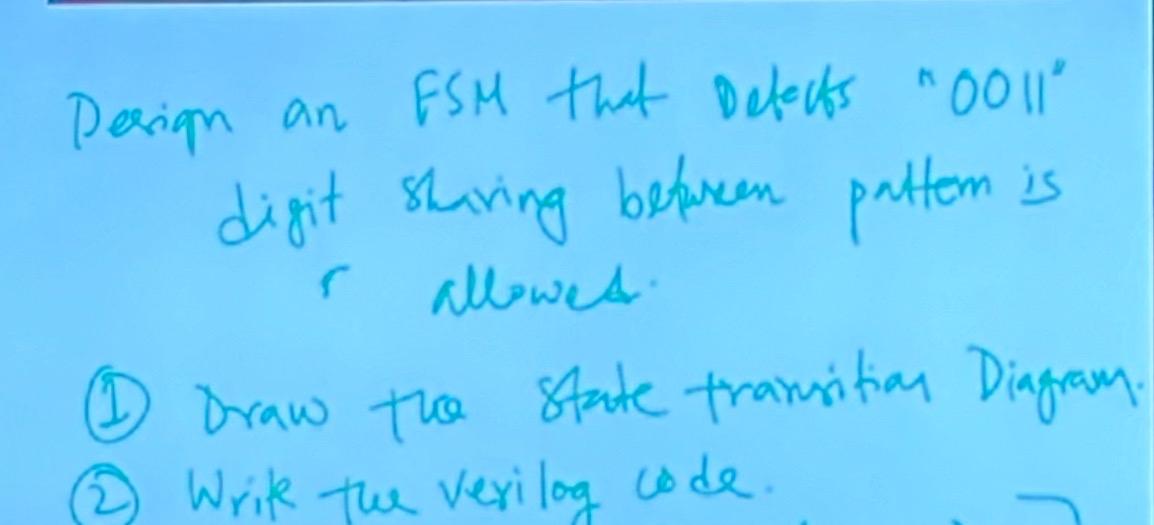 Design an FSM that Detects "0011"
digit sharing between pattern is
allowed.
① Draw the state transition Diagram.
② Write the verilog code.